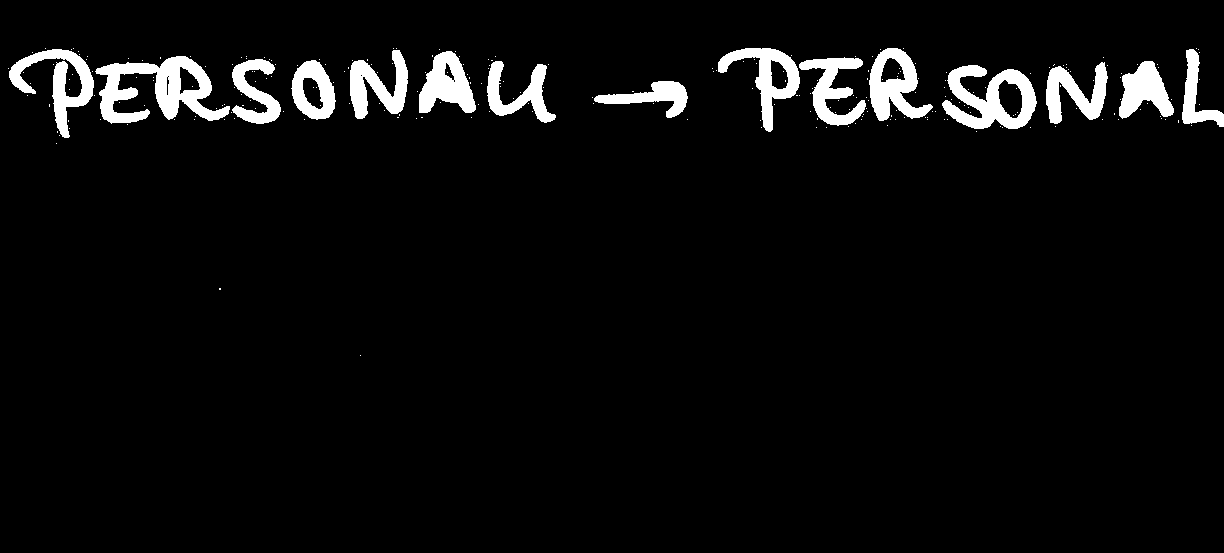 PERSONAU → PERSONAL